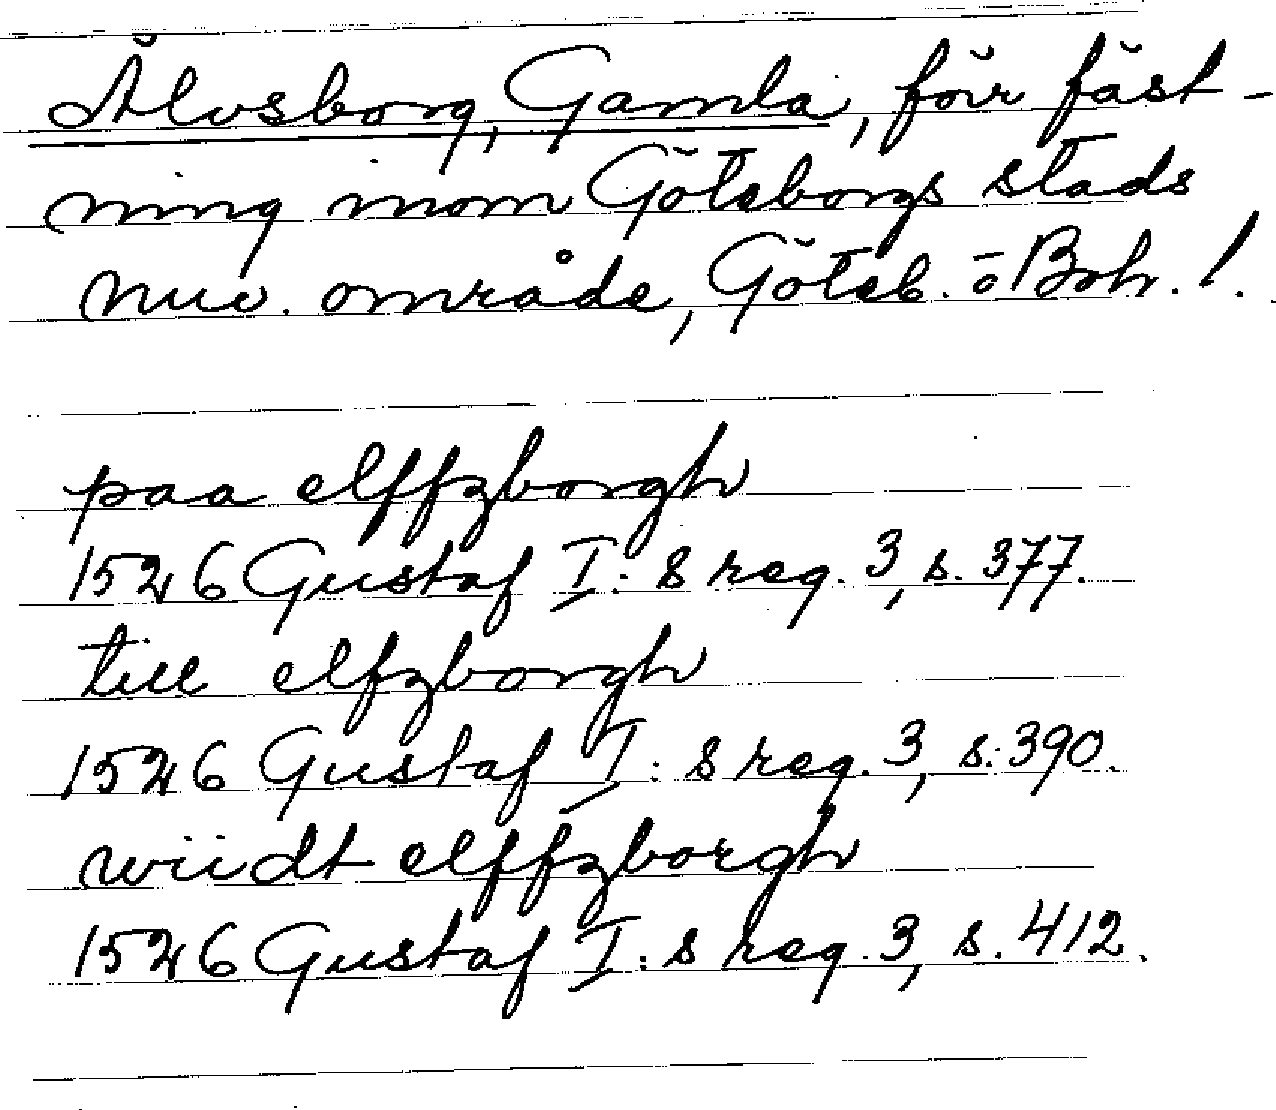 Älvsborg, Gamla, förr fäst-
ning inom Göteborgs stads
nuv. område, Göteb. o Boh. l.
paa elffzborgh
1526 Gustaf I:s reg. 3, s. 377.
till elfzborgh
1526 Gustaf I:s reg. 3, s. 390.
wiidt elffzborgh
1526 Gustaf I:s reg. 3, s. 412.